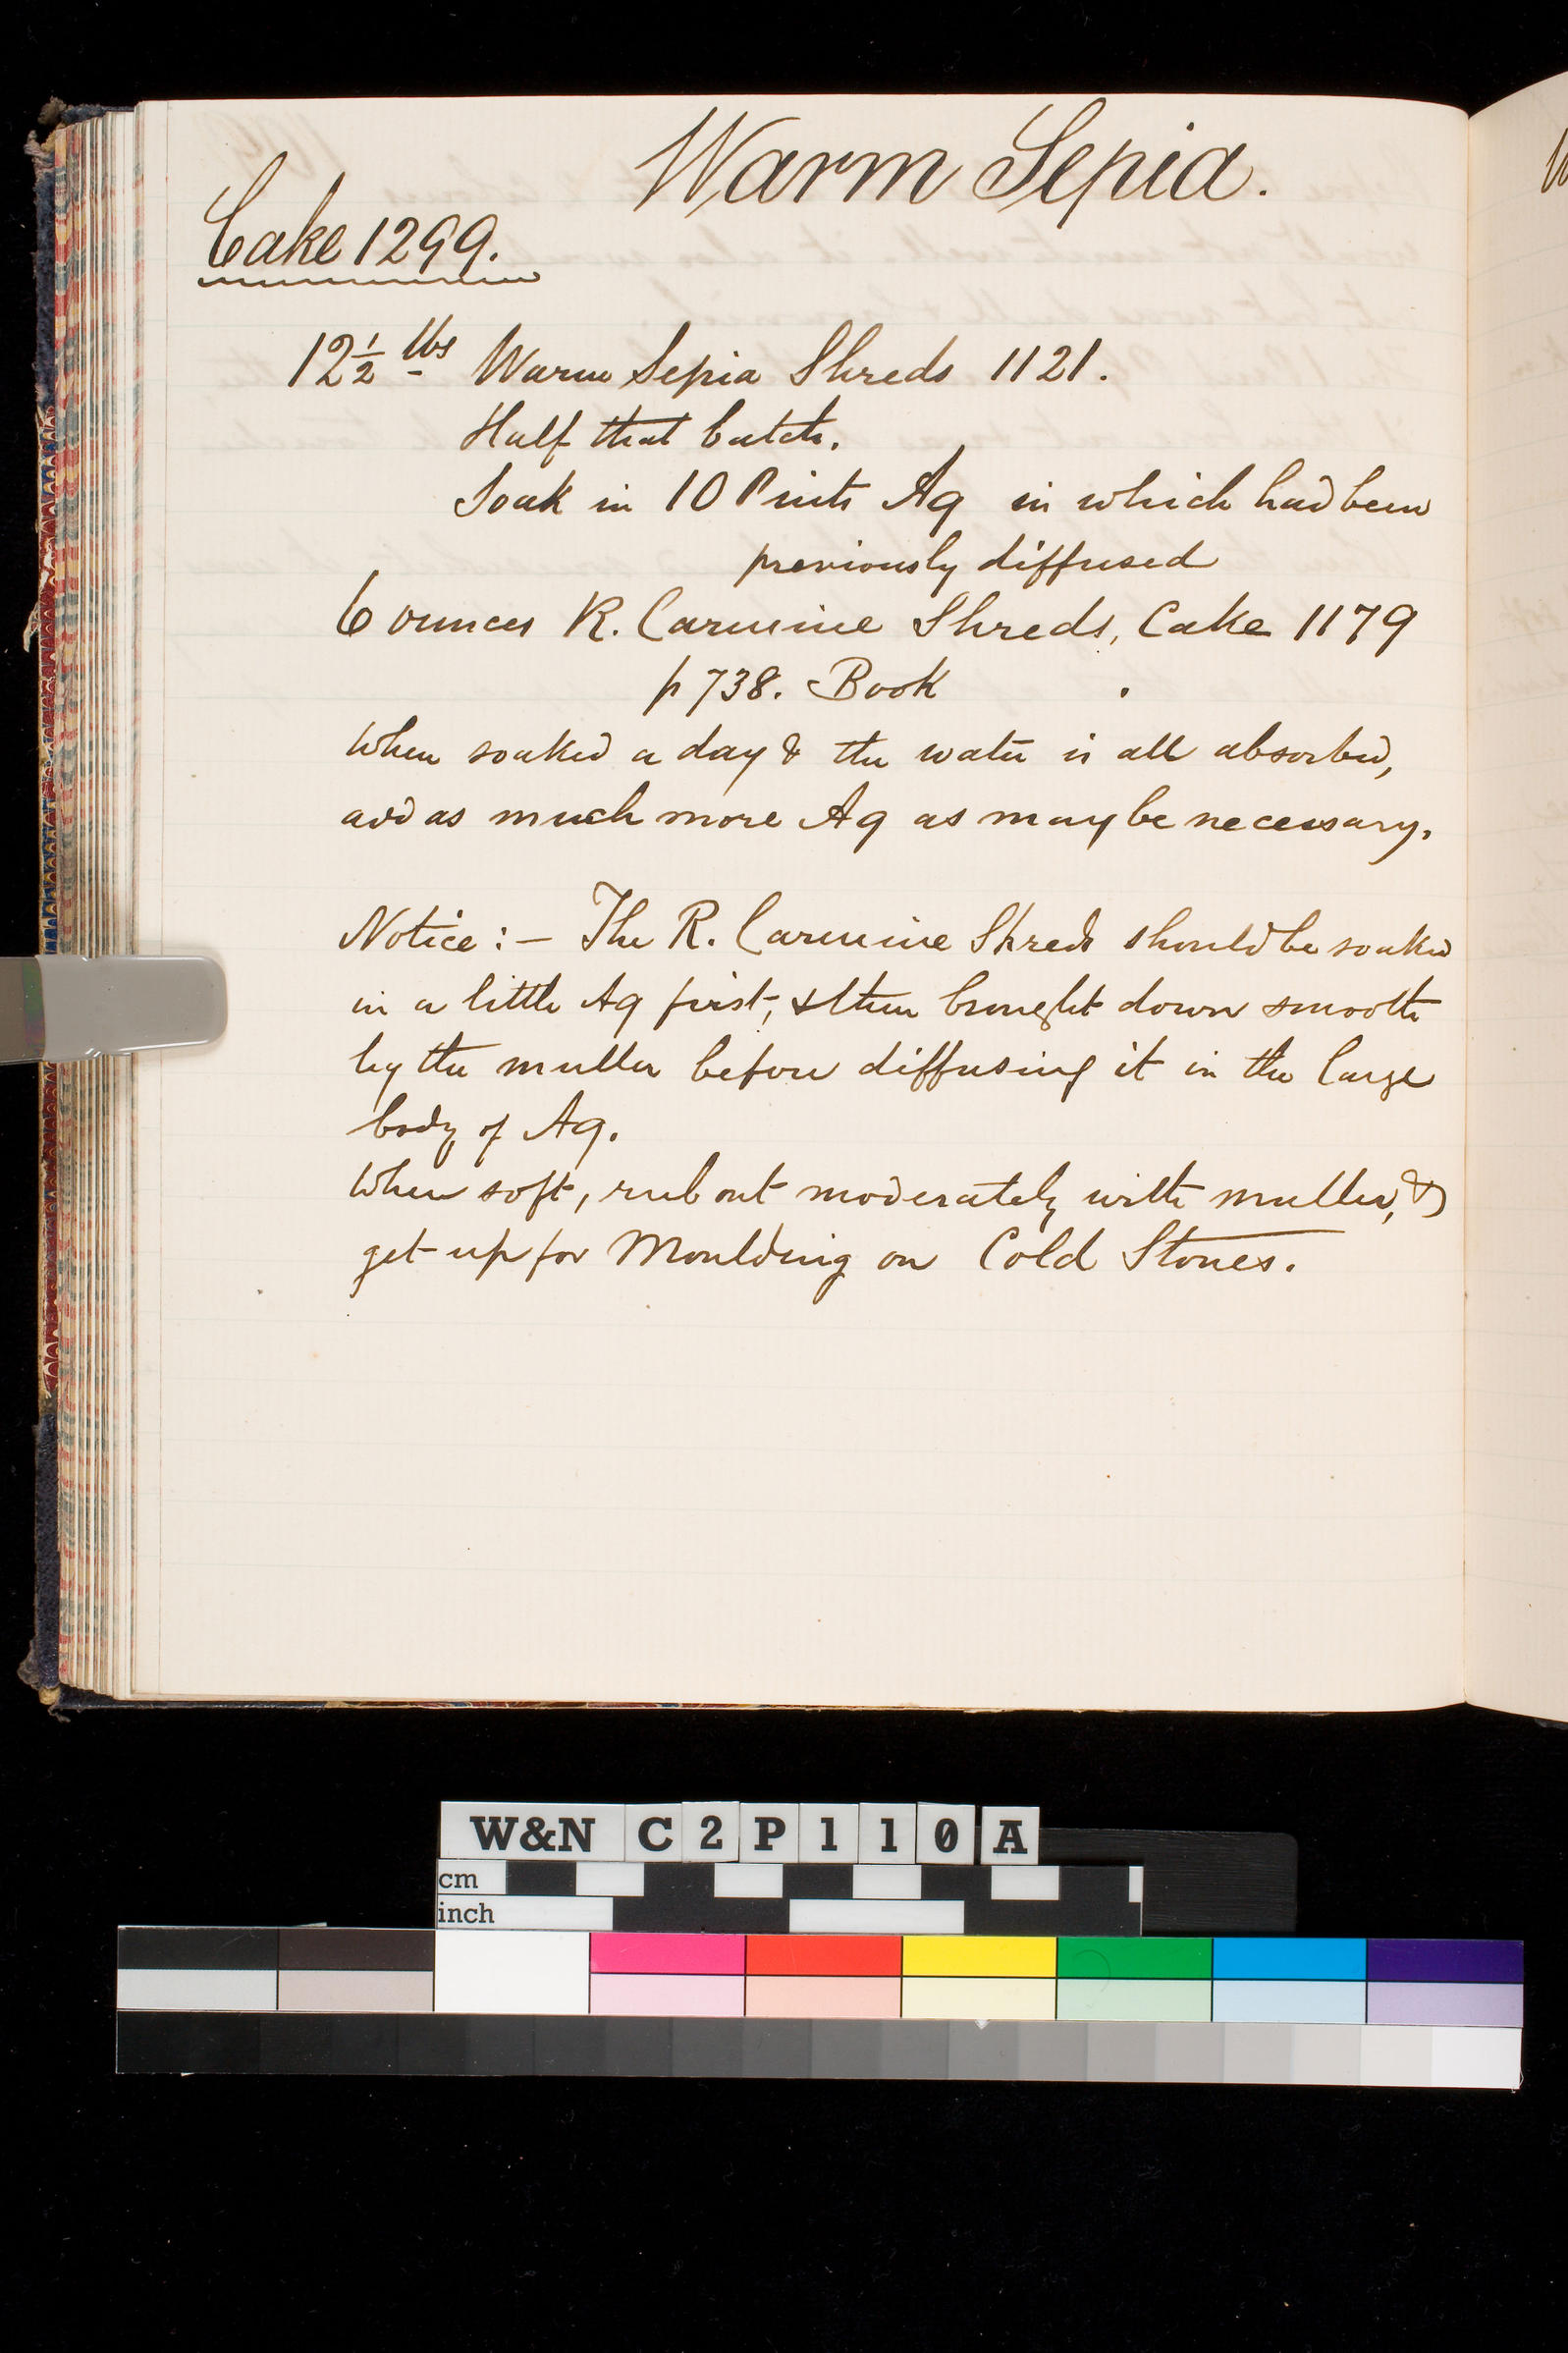 Warm Sepia.
Cake 1299.
12½ lbs Warm Sepia Shreds 1121.
Half that batch.
Soak in 10 Pints Aq in which had been
previously diffused
6 ounces R. Carmine Shreds, Cake 1179
p 738. Book
When soaked a day & the water is all absorbed,
add as much more Aq as may be necessary.
Notice :- The R. Carmine Shreds should be soaked
in a little Aq first, & then brought down smooth
by the muller before diffusing it in the large
body of Aq.
When soft, rub out moderately with muller, &
get up for Moulding on Cold Stones.
W&N C2P110A
cm
inch